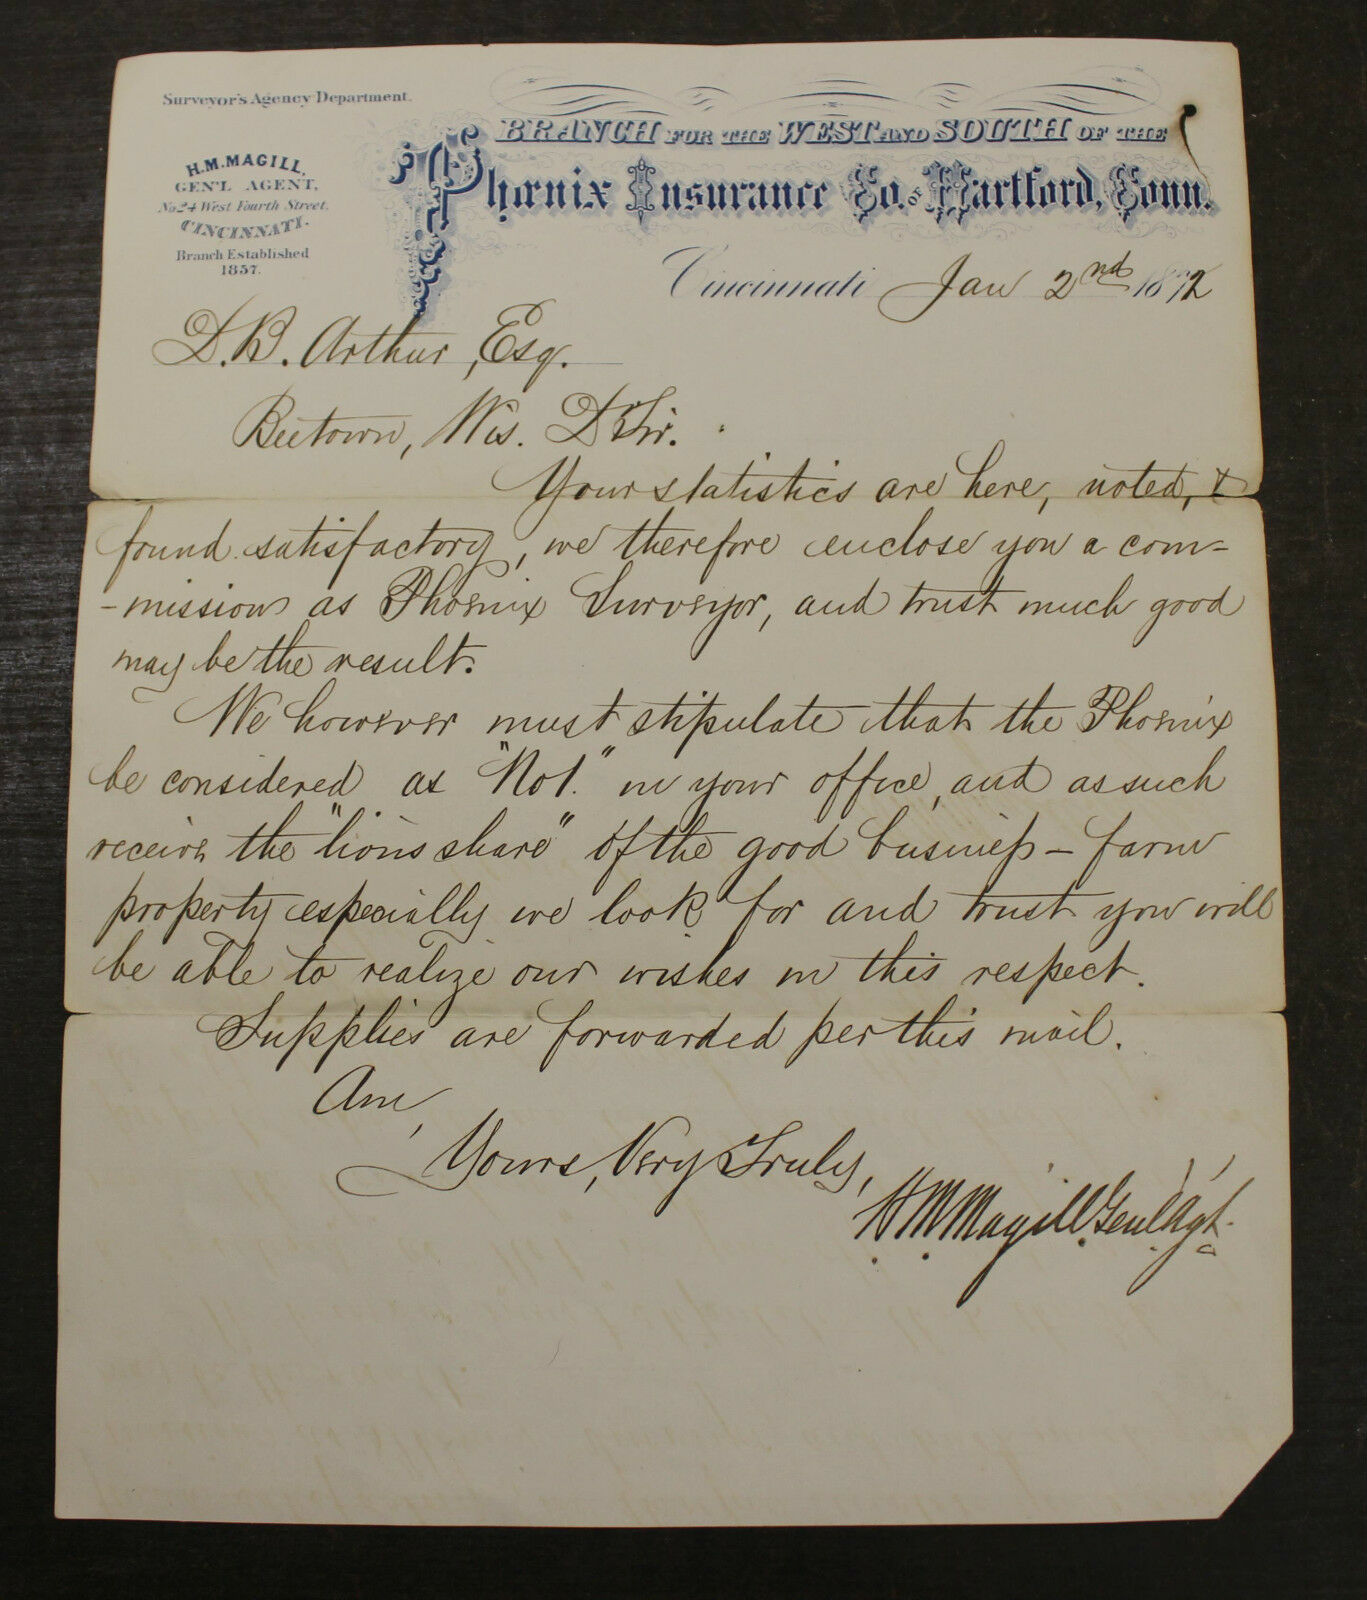 Surveyor's Agency Department.
H. M. MAGILL,
GEN'L AGENT,
No 24 West Fourth Street,
CINCINNATI.
Branch Established
1857.
BRANCH FOR THE WEST AND SOUTH OF THE
Phœnix Insurance Co. OF Hartford, Conn.
Cincinnati Jan 2nd 1872
D. B. Arthur, Esq.
Beetown, Wis. D Sir.
Your statistics are here, noted, &
found satisfactory, we therefore enclose you a com-
-mission as Phoenix Surveyor, and trust much good
may be the result.
We however must stipulate that the Phoenix
be considered as "No 1." in your office, and as such
receive the "lions share" of the good business - farm
property especially we look for and trust you will
be able to realize our wishes in this respect.
Supplies are forwarded per this mail.
Am,
Yours, Very Truly,
H M Magill Genl Agt.